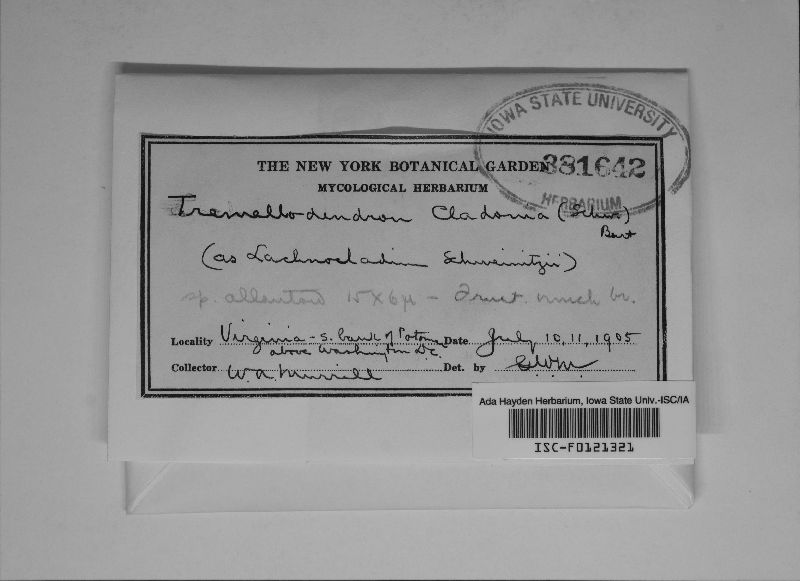 IOWA STATE UNIVERSITY
381642
HERBARIUM
THE NEW YORK BOTANICAL GARDEN
MYCOLOGICAL HERBARIUM
Tremellodendron Cladonia (Schw)
Burt
(as Lachnocladium Schweinitzii)
sp. allantoid 15 X 6µ - Fruct. much br.
Locality Virginia - S. bank of Potomac Date July 10, 11, 1905
above Washington D.C.
Collector W. A. Murrill Det. by GWM
Ada Hayden Herbarium, Iowa State Univ.-ISC/IA
ISC-F0121321